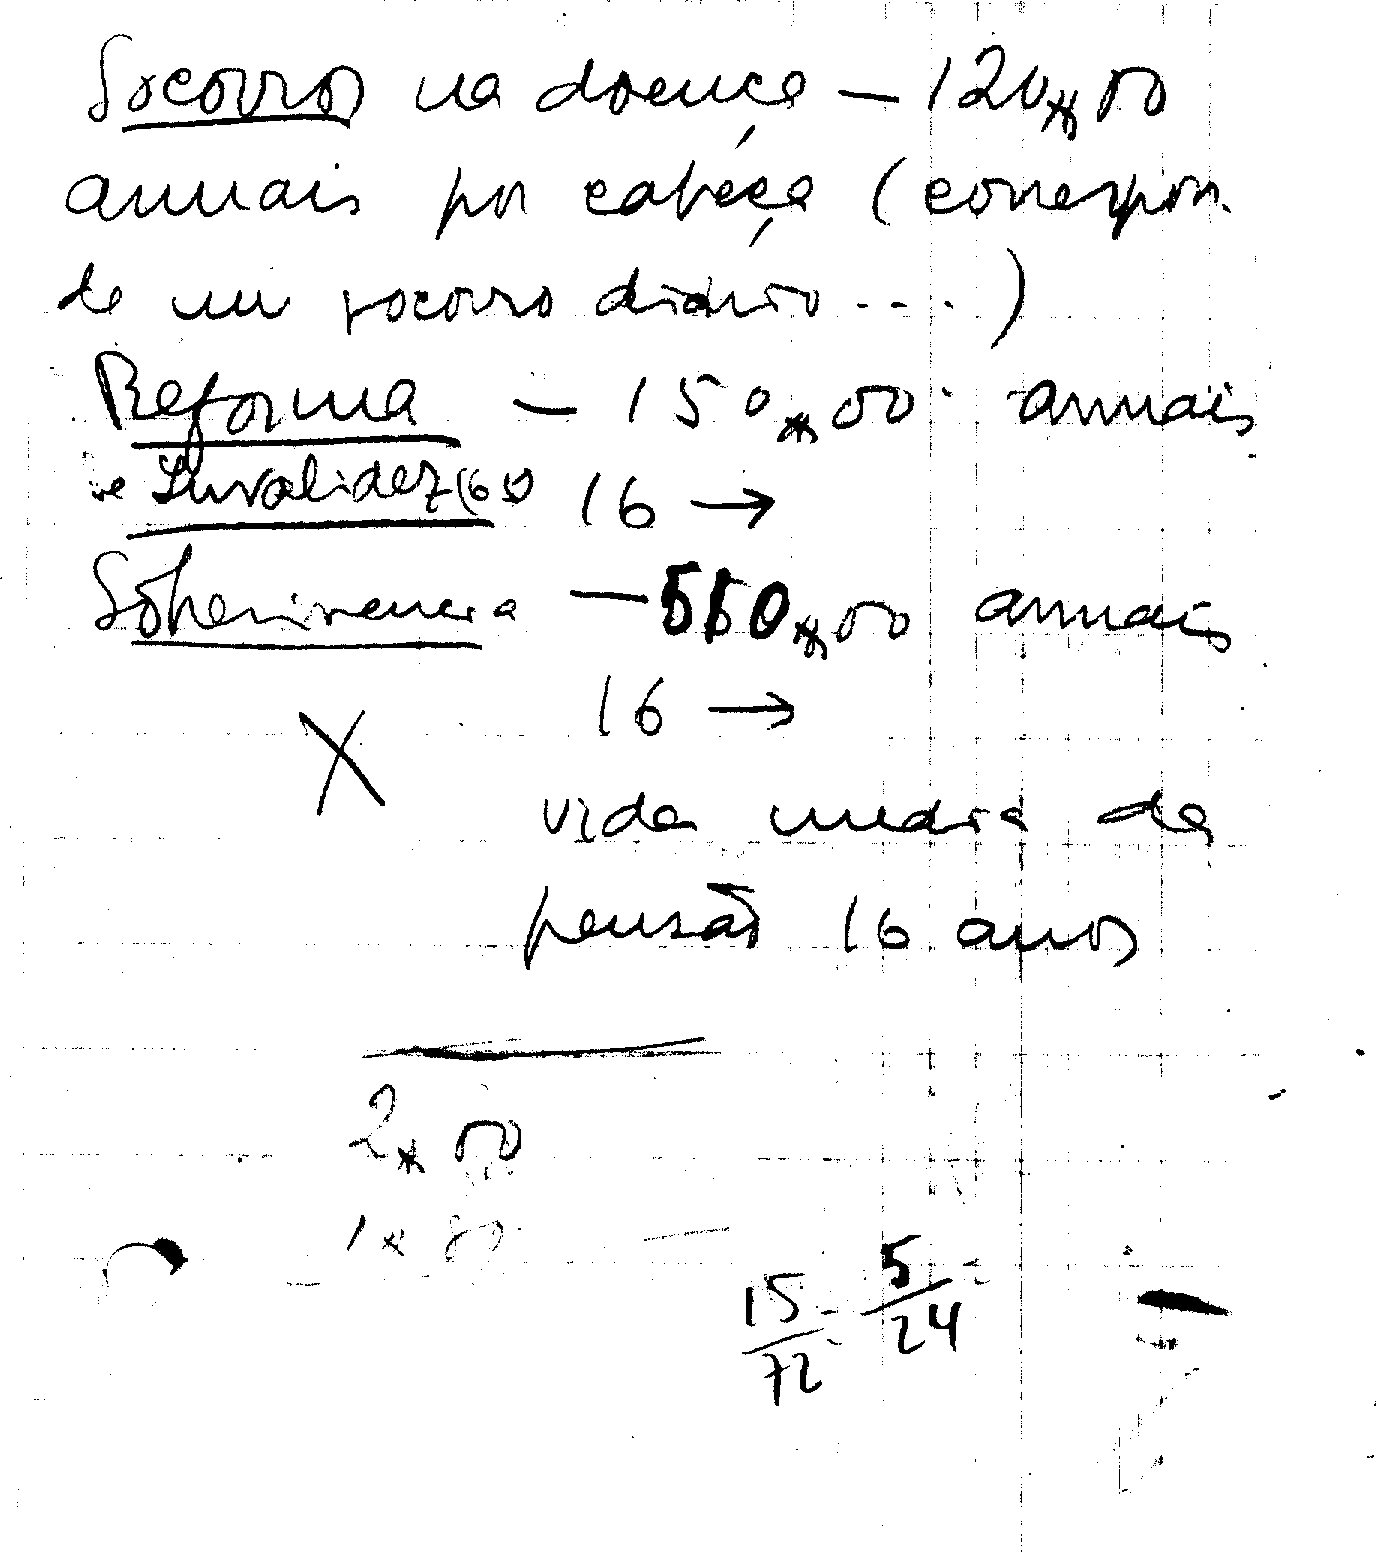 Socorros na doença – 120$00
annuais por cabeça (correspon-
de um socorro diário ....)
Reforma – 150$00 annuais
e Invalidez (65) 16 →
Sobrevivencia – 550$00 annuais
16 →
X
vida media da
pensão 16 anos
2$00
1$80
15/72 = 5/24